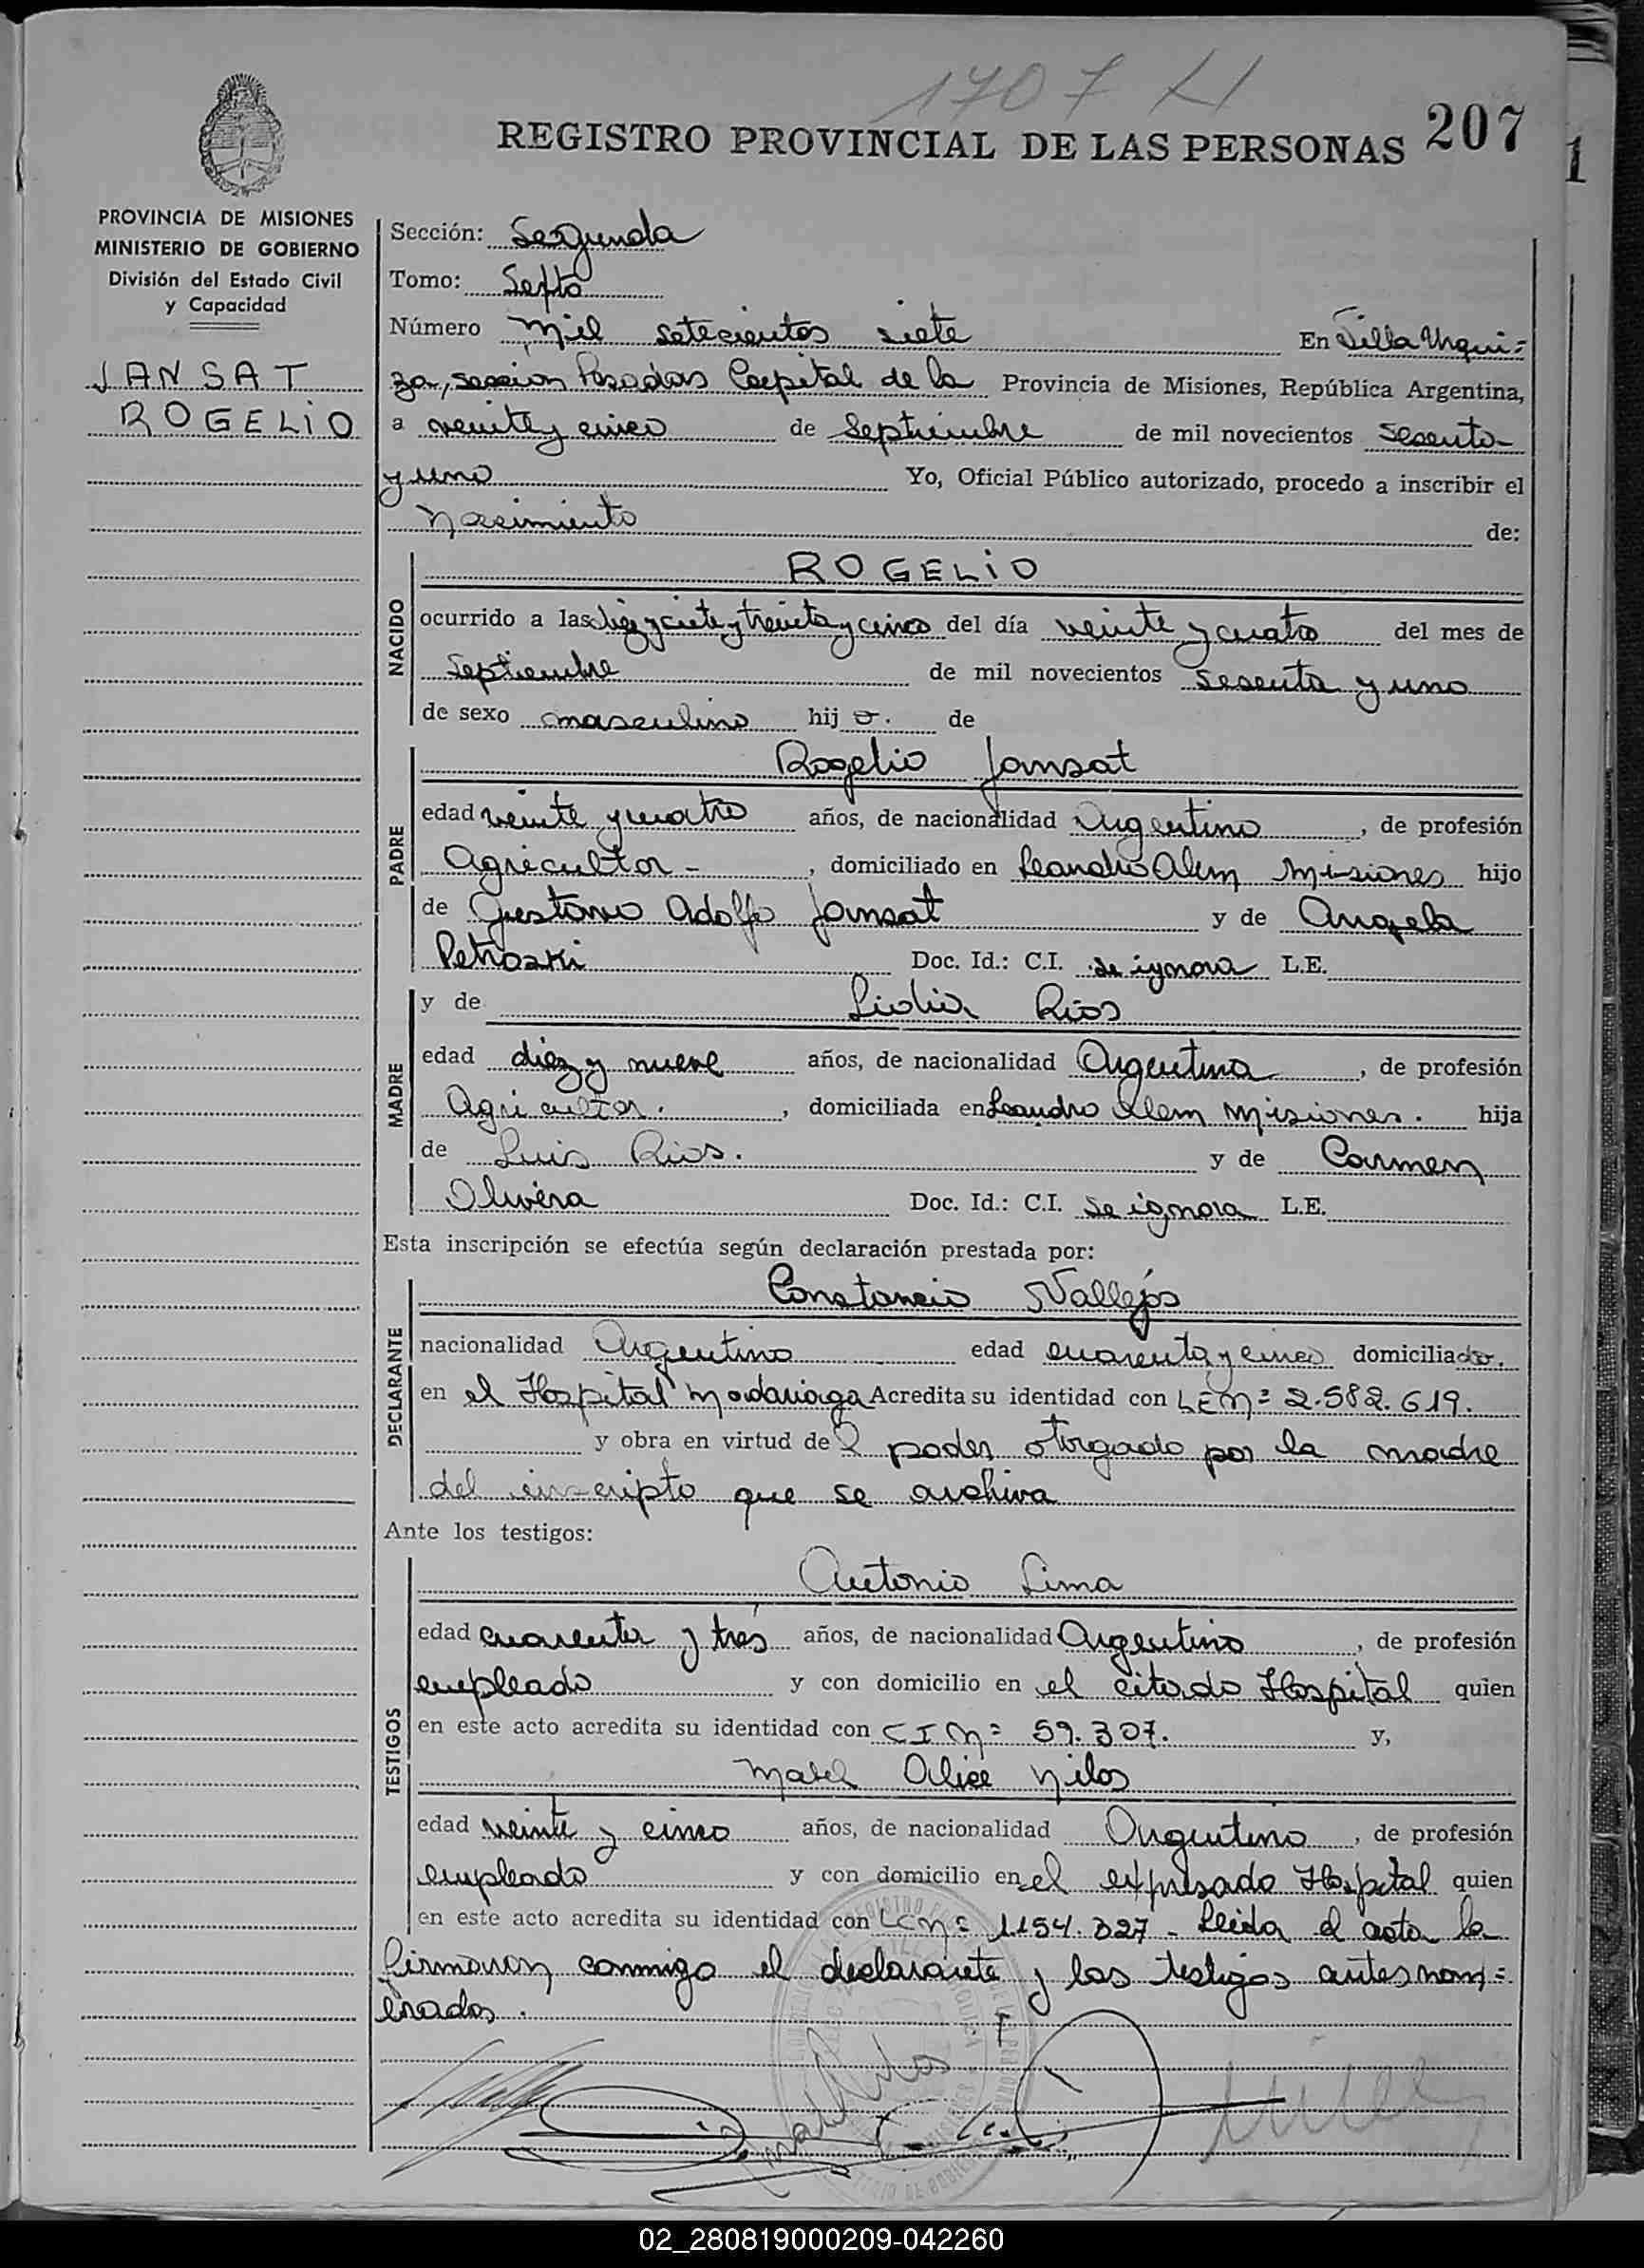 1707 LI
REGISTRO PROVINCIAL DE LAS PERSONAS 207
1
PROVINCIA DE MISIONES
MINISTERIO DE GOBIERNO
División del Estado Civil
y Capacidad
JANSAT
ROGELIO
Sección: Segunda
Tomo: Septo
Número Mil setecientos siete En Villa Urqui=
za, seccion Posadas Capital de la Provincia de Misiones, República Argentina,
a veinte y cinco de Septiembre de mil novecientos sesenta-
y uno Yo, Oficial Público autorizado, procedo a inscribir el
Nacimiento de:
NACIDO
ROGELIO
ocurrido a las diez y ciete y treinta y cinco del día veinte y cuatro del mes de
Septiembre de mil novecientos sesenta y uno
de sexo masculino hijo. de
PADRE
Rogelio Jansat
edad veinte y cuatro años, de nacionalidad Argentino, de profesión
Agricultor-, domiciliado en Leandro Alem Misiones hijo
de Gustavo Adolfo Jansat y de Angela
Petroski Doc. Id.: C.I. se ignora L.E.
MADRE
y de Lidia Rios
edad diez y nueve años, de nacionalidad Argentina, de profesión
Agricultor., domiciliada en Leandro Alem Misiones. hija
de Luis Rios. y de Carmen
Olivera Doc. Id.: C.I. se ignora L.E.
Esta inscripción se efectúa según declaración prestada por:
DECLARANTE
Constancio Vallejos
nacionalidad Argentino edad cuarenta y cinco domiciliado.
en el Hospital Madariaga Acredita su identidad con LEN= 2.582.619.
y obra en virtud de poder otorgado por la madre
del inscripto que se archiva
Ante los testigos:
TESTIGOS
Antonio Lima
edad cuarenta y trés años, de nacionalidad Argentino, de profesión
empleado y con domicilio en el citado Hospital quien
en este acto acredita su identidad con CIN= 59.307. y,
Mabel Alice Nilos
edad veinte y cinco años, de nacionalidad Argentino, de profesión
empleado y con domicilio en el expresado Hospital quien
en este acto acredita su identidad con LCN= 1.154.327- Leida el acta la
firmaron conmigo el declarante y los testigos antes nom=
brados.
02_280819000209-042260